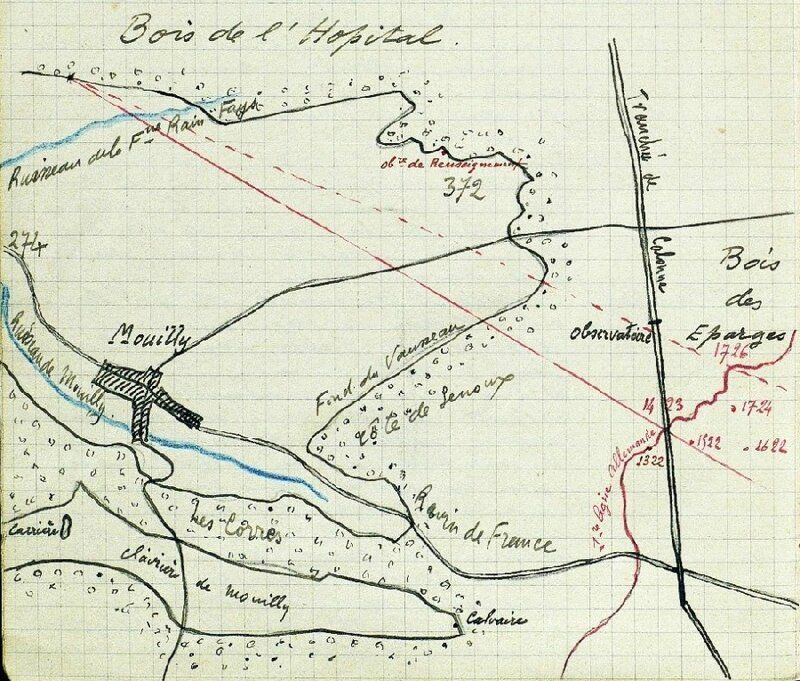 Bois de l'Hopital.
Fays
Ruisseau de la Fme Rain
Obre de Renseignement
372
Tranchée de
Calonne
274
Bois
des
Eparges
Mouilly
Observatoire
1726
Fond du Vausseau
Côte de Senoux
14 23
1724
1522
1622
1322
1re Ligne Allemande
Ravin de France
Les Corres
Carrière
de Mouilly
Calvaire